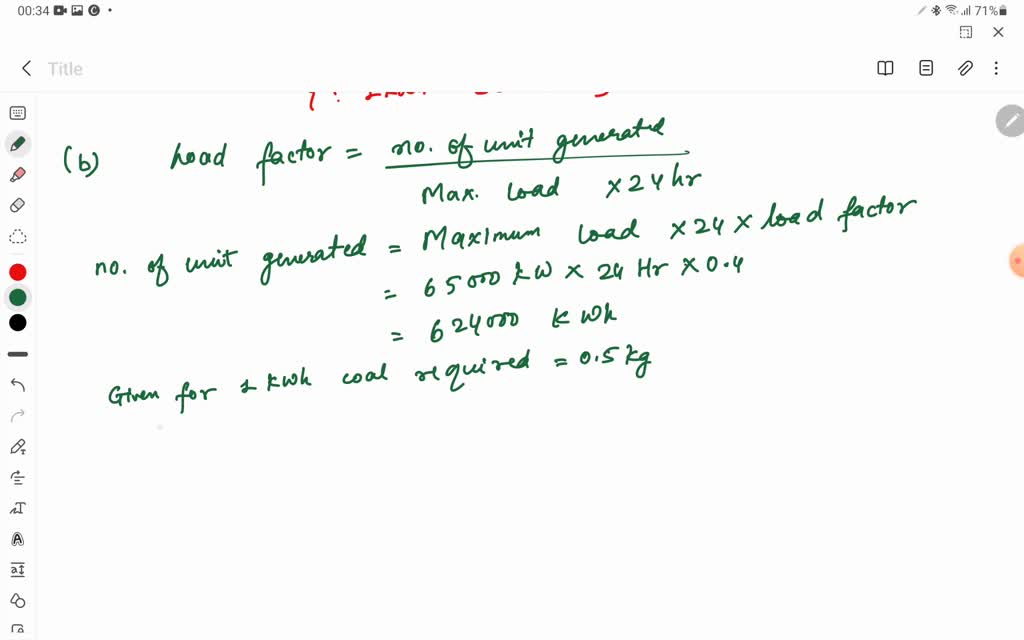 00:34
71%
Title
(b) Load factor = no. of unit generated
Max. Load × 24 hr
no. of unit generated = Maximum Load × 24 × Load factor
= 65000 kW × 24 Hr × 0.4
= 624000 kWh
Given for 1 kWh coal required = 0.5 kg